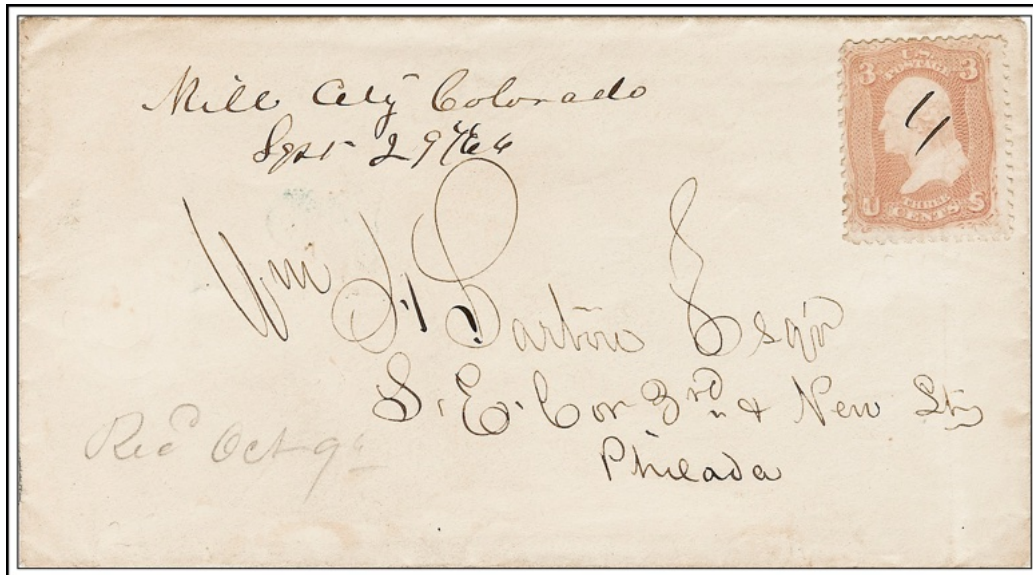 Mill City Colorado
Sept 29th/66
3 U.S. POSTAGE 3
U THREE CENTS S
Wm H. Esqr
S. E. Cor 3rd & New Sts
Philada
Recd Oct 9th